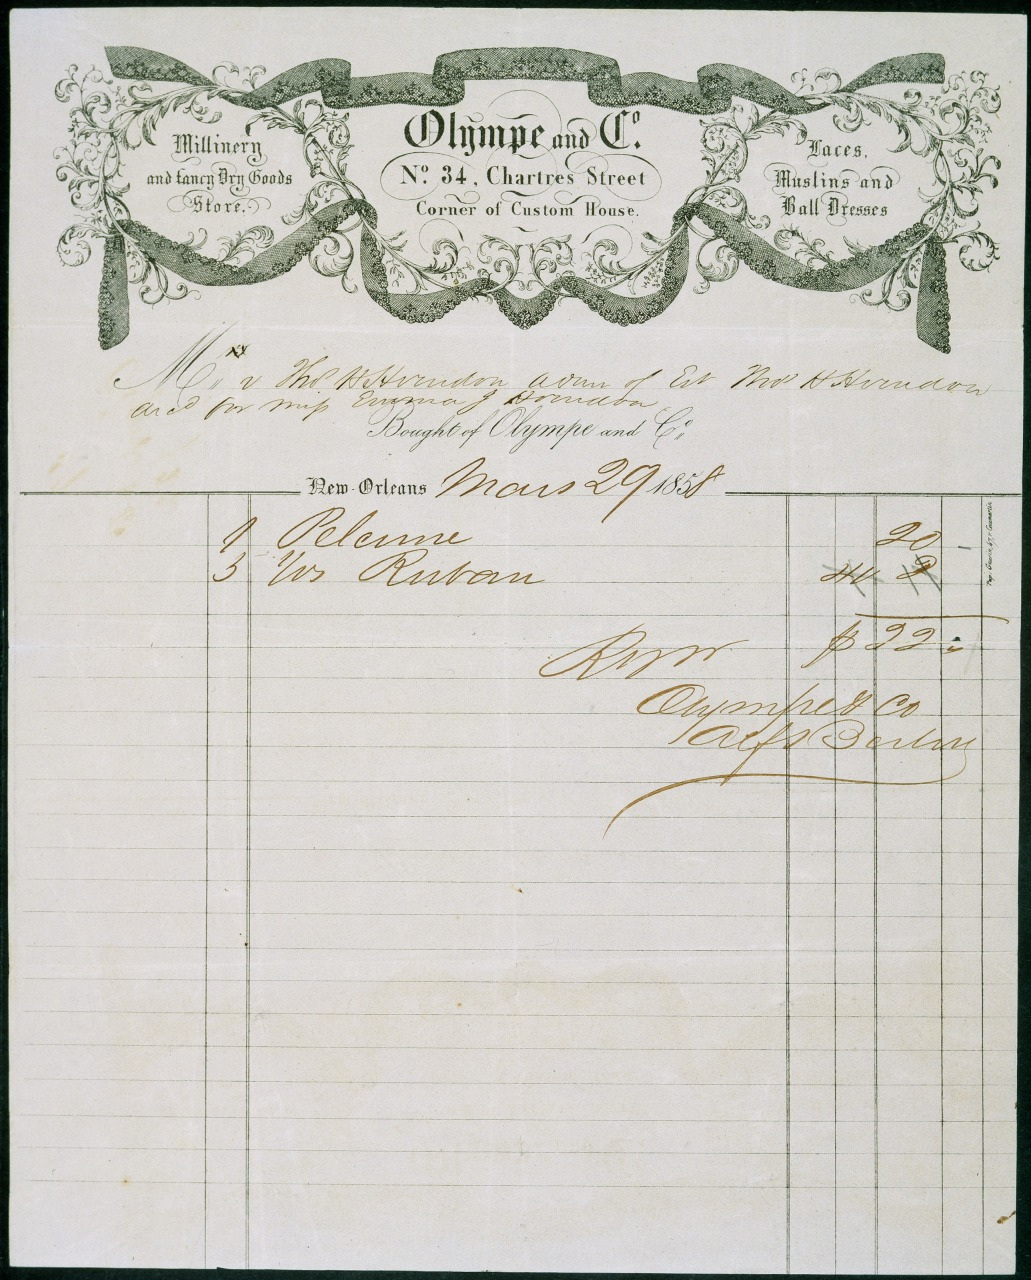 Olympe and Co.
No. 34, Chartres Street
Corner of Custom House.
Millinery
and fancy Dry Goods
Store.
Laces,
Muslins and
Ball Dresses
Thos H Herndon adm of Est Thos H Herndon
decd for miss Emma J Herndon
Bought of Olympe and Co.
New-Orleans Mars 29 1858
1 Pelerine 20 -
5 Yds Ruban 40 2
$ 22 -
Olympe & Co